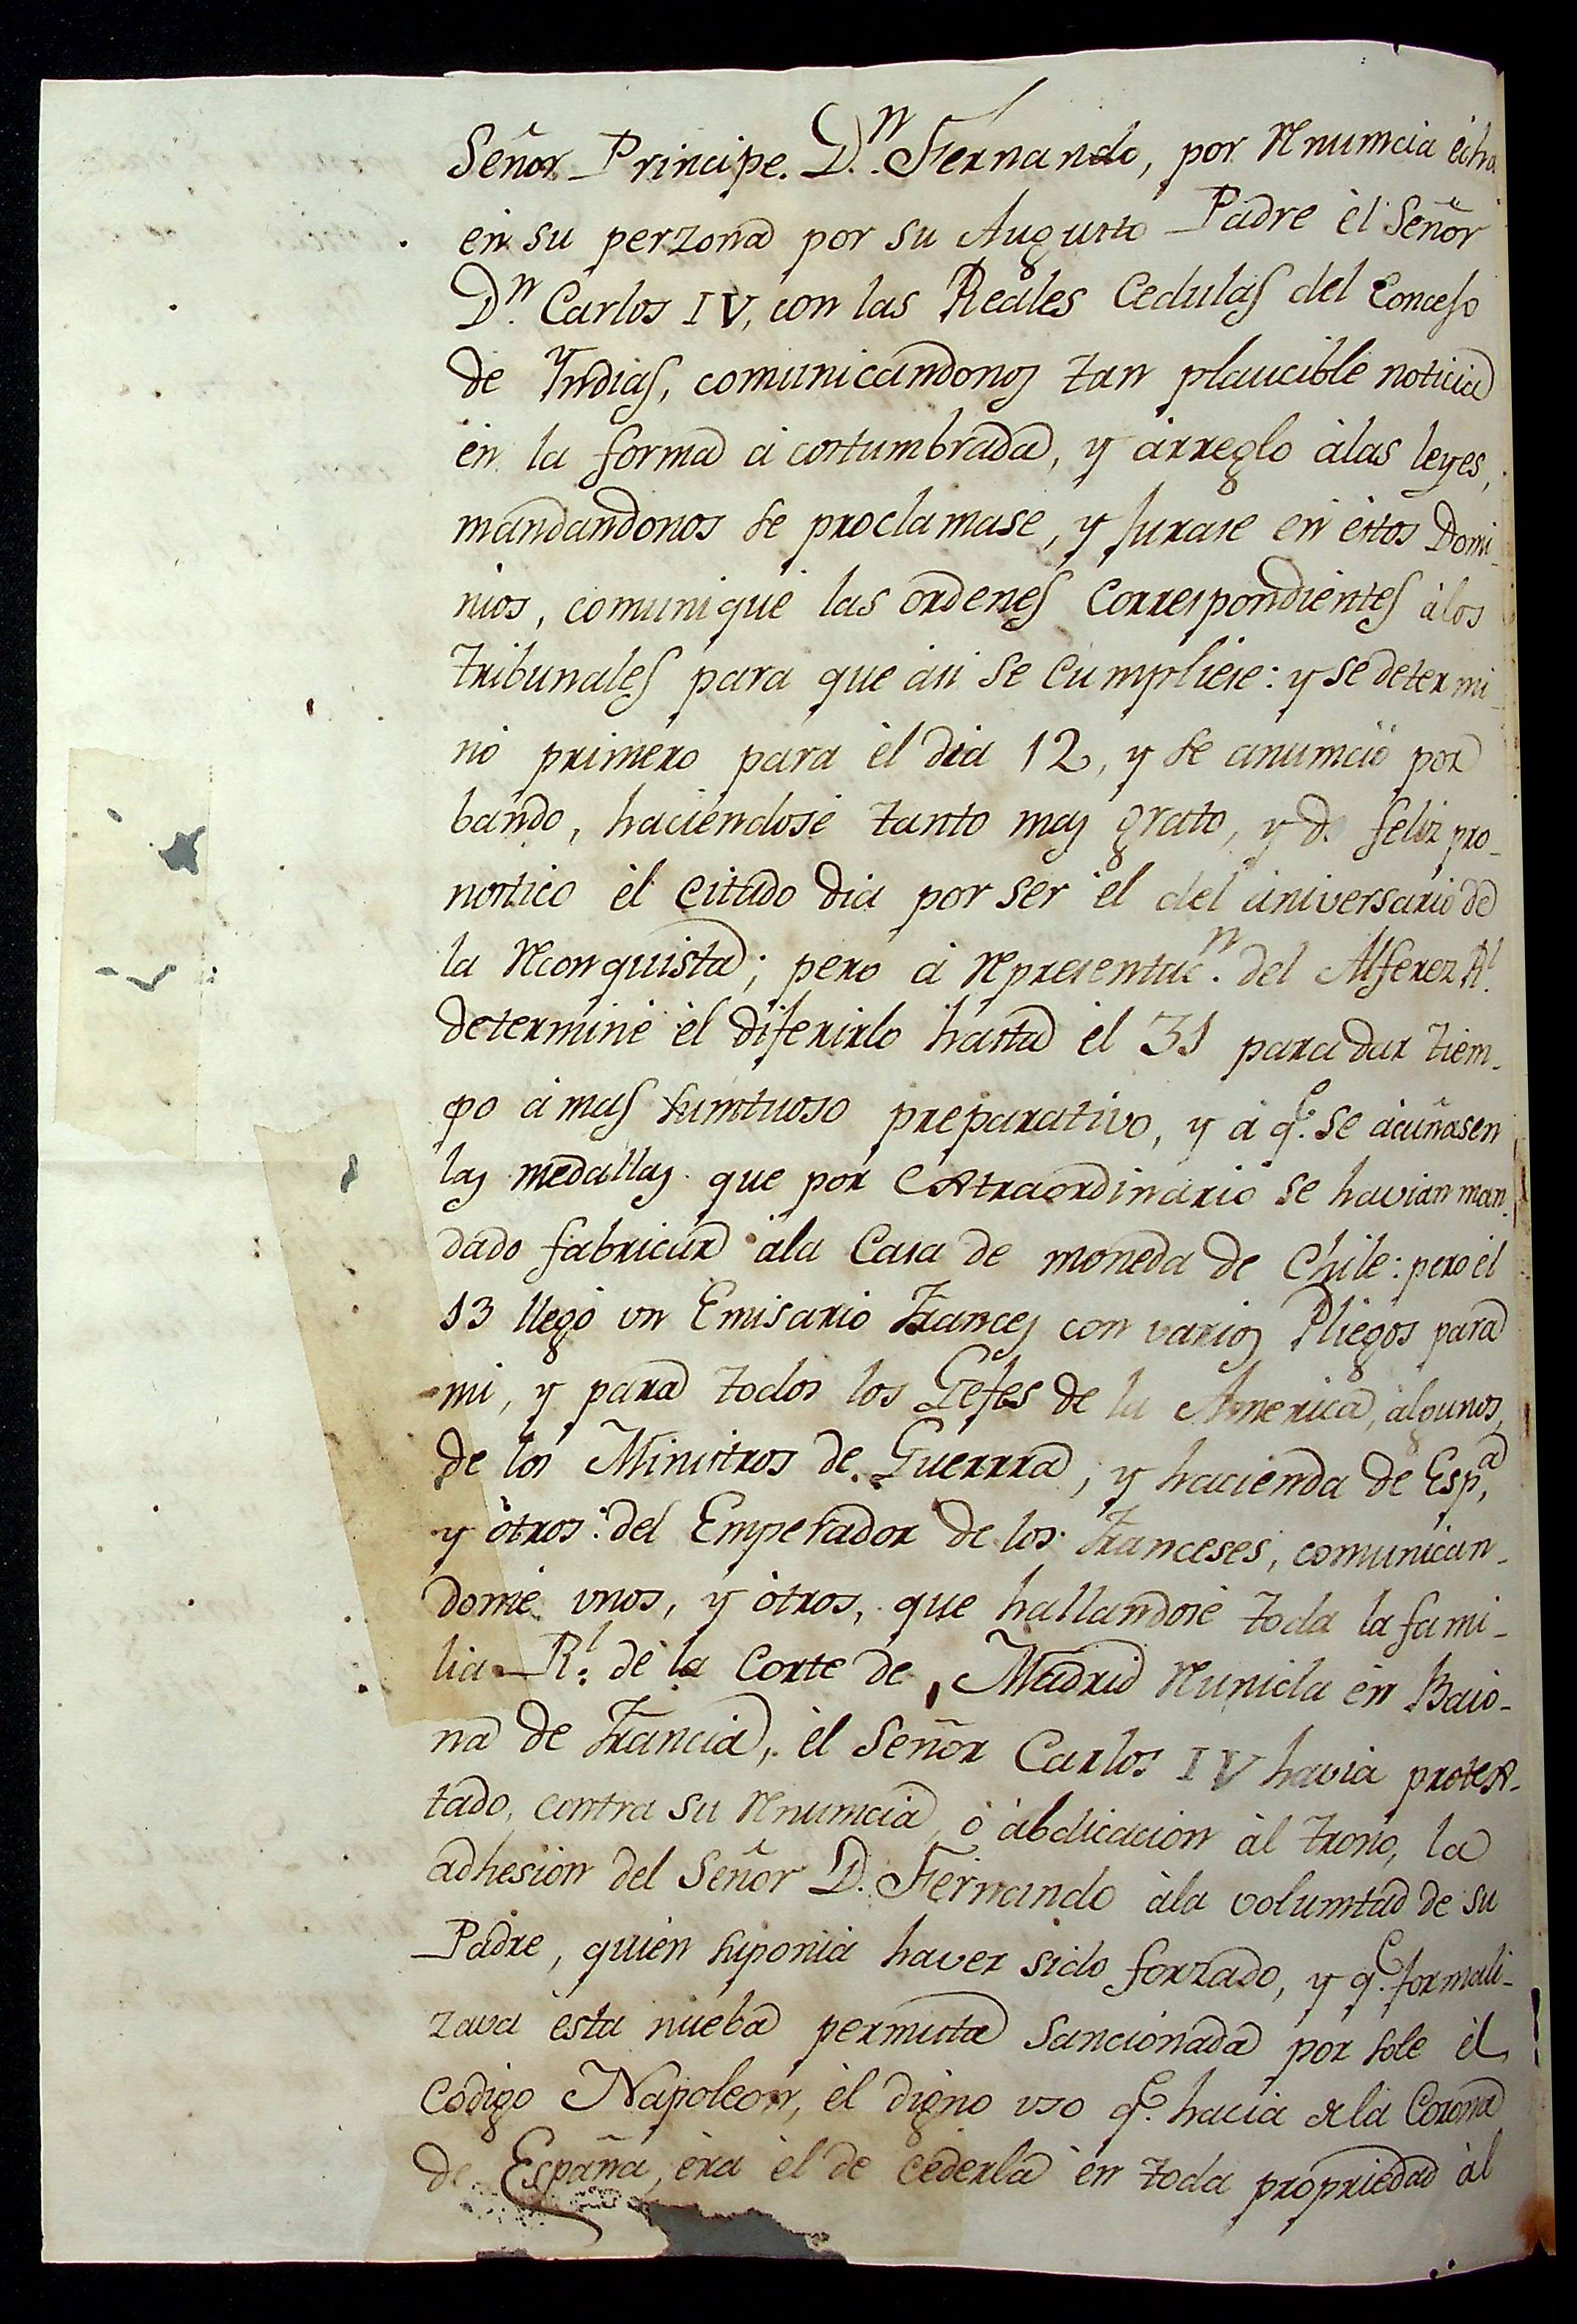 Señor Principe. D.ⁿ Fernando, por Renuncia ècha
èn su perzona por su Augusto Padre èl Señor
D.ⁿ Carlos IV, con las Reales Cedulas del Consejo
de Yndias, comunicandonos tan plaucible noticia
èn la forma àcostumbrada, y àrreglo àlas leyes,
mandandonos se proclamase, y jurase èn èstos Domi-
nios, comuniquè las ordenes Correspondientes àlos
tribunales para que àsi se Cumpliese: y se determi-
nò primero para èl dia 12, y se anunciò por
bando, haciendose tanto mas grato, y de feliz pro-
nostico èl Citado dia por ser èl del àniversario de
la Reconquista; pero à Representac.ⁿ del Alferez Rˡ.
determinè èl diferirlo hasta èl 31 para dar tiem-
po à mas sumtuoso preparativo, y à q.ᵉ se àcuñasen
las medallas que por Extraordinario se havian man-
dado fabricar àla Casa de moneda de Chile: pero èl
13 llegò un Emisario Frances con varios Pliegos para
mi, y para todos los Gefes de la America, àlgunos
de los Ministros de Guerrra, y hacienda de Espᵃ,
y òtros del Emperador de los Franceses, comunican-
dome unos, y òtros, que hallandose toda la fami-
lia Rˡ. de la Corte de Madrid Reunida èn Baio-
na de Francia, èl Señor Carlos IV havia protex-
tado, contra su Renuncia, ò àbdicacion àl trono, la
adhesiòn del Señor D. Fernando àla voluntad de su
Padre, quien suponia haver sido forzado, y q.ᵉ formali-
zava esta nueba permuta sancionada por solo èl
Codigo Napoleon, èl digno uso q.ᵉ hacia dela Corona
de España, èra èl de cederla èn toda propriedad àl